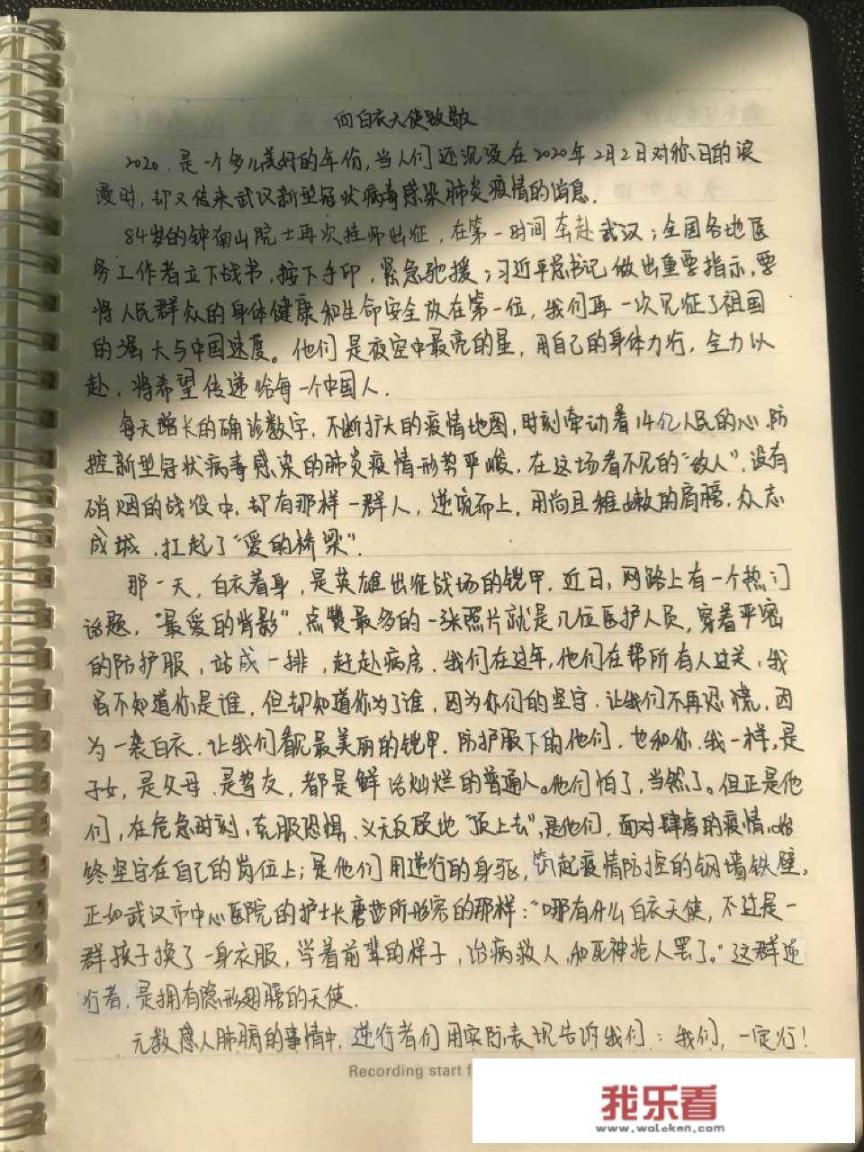 向白衣天使致敬
2020，是一个多么美好的年份，当人们还沉浸在2020年2月2日对称日的浪
漫时，却又传来武汉新型冠状病毒感染肺炎疫情的消息．
84岁的钟南山院士再次挂帅出征，在第一时间奔赴武汉；全国各地医
务工作者立下战书，按下手印，紧急驰援；习近平总书记做出重要指示，要
将人民群众的身体健康和生命安全放在第一位，我们再一次见证了祖国
的强大与中国速度。他们是夜空中最亮的星，用自己的身体力行，全力以
赴，将希望传递给每一个中国人．
每天增长的确诊数字，不断扩大的疫情地图，时刻牵动着14亿人民的心．防
控新型冠状病毒感染的肺炎疫情形势严峻，在这场看不见的“敌人”，没有
硝烟的战役中，却有那样一群人，逆境而上，用尚且稚嫩的肩膀，众志
成城，扛起了“爱的桥梁”．
那一天，白衣着身，是英雄出征战场的铠甲．近日，网路上有一个热门
话题，“最爱的背影”，点赞最多的一张照片就是几位医护人员，穿着严密
的防护服，站成一排，赶赴病房．我们在过年，他们在帮所有人过关，我
虽不知道你是谁，但却知道你为了谁，因为你们的坚守，让我们不再恐慌，因
为一袭白衣，让我们看见最美丽的铠甲．防护服下的他们，也和你、我一样，是
子女，是父母，是挚友，都是鲜活灿烂的普通人。他们怕了，当然了。但正是他
们，在危急时刻，克服恐惧，义无反顾地“顶上去”，是他们，面对肆虐的疫情，始
终坚守在自己的岗位上；是他们用逆行的身躯，筑起疫情防控的钢墙铁壁，
正如武汉市中心医院的护士长唐莎所形容的那样：“哪有什么白衣天使，不过是一
群孩子换了一身衣服，学着前辈的样子，治病救人，和死神抢人罢了。”这群逆
行者，是拥有隐形翅膀的天使．
无数感人肺腑的事情中，逆行者们用实际表现告诉我们：我们，一定行！
Recording start f
我乐看
www.woleken.com